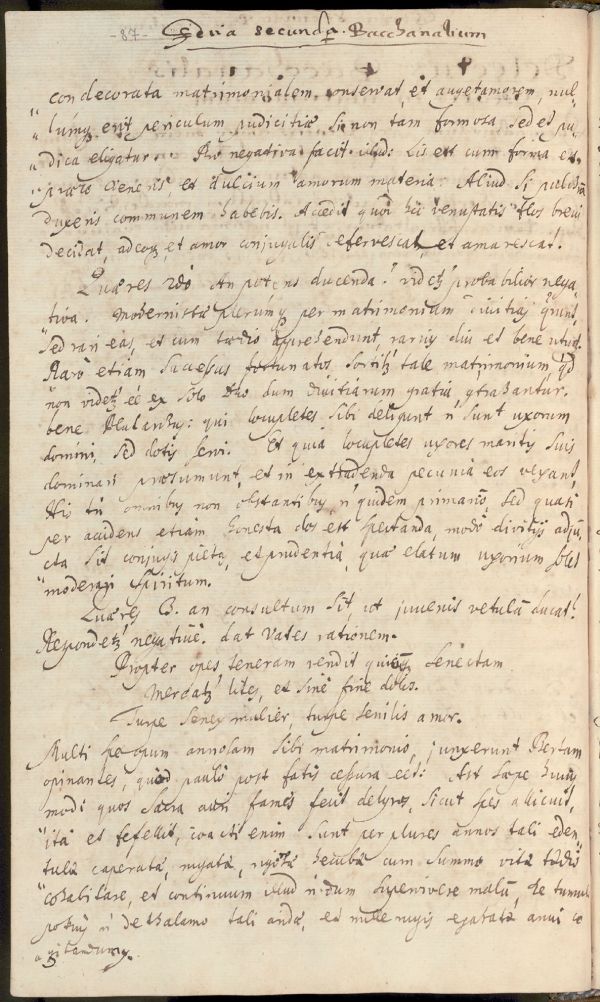 -87- Feria secunda Bacchanalium
condecorata matrimonialem conservat, et auget amorem, nul-
"lumq erit periculum pudicitiæ, si non tam formosa sed et pu-
"dica eligatur. Pro negativa facit illud: Lis est cum forma
Veneris, et dulcium amorum materia. Aliud. Si pulchrã
duxeris communem habebis. Accedit quod hic venustatis flos brevi
decidat, adeoq et amor conjugalis defervescat, et amarescat.
Quæres 2do An potens ducenda? videtr probabilior nega
tiva. Modernistæ plerumq per matrimonium divitias qrunt,
sed rari eas, et cum tædio apprehendunt, rarius diu et bene
Raro etiam successus fortunatos sortitr tale matrimonium, qd
"non videtr eē ex solo Deo dum divitiarum gratia qtrahantur.
bene: qui locupletes sibi deligunt n sunt uxorum
domini, sed dotis servi. Et quia locupletes uxores maritis suis
dominari præsumunt, et in extradenda pecunia eos vexant,
His tñ omnibus non obstantibus, n quidem primario, sed quasi
per accidens etiam, honesta dos est spectanda, modo divitijs adju
cta sit conjugis pietas, et prudentia, quæ elatum uxorium solet
"moderari spiritum.
Quæres 3. an consultum sit, ut juvenis vetulã ducat?
Respondetr negative. dat Vates rationem.
Propter opes teneram vendit senectam
Mercatr lites, et sine fine dolos.
Turpe senex mulier, turpe senilis amor.
Multi spe opum annosam sibi matrimonio junxerunt Bertam
opinantes, quod paulo post fatis cessura eēt: Ast sæpe hujus
modi quos sacra auri fames fecit delyros, sicut spes allicuit,
"ita et fefellit, coacti enim sunt per plures annos tali eden
tula caperata, rugata, hecuba cum summo vitæ tædio
"cohabitare, et continuum illud n dum malũ, de tumulo
potius n de thalamo tali anui co
gitandum.